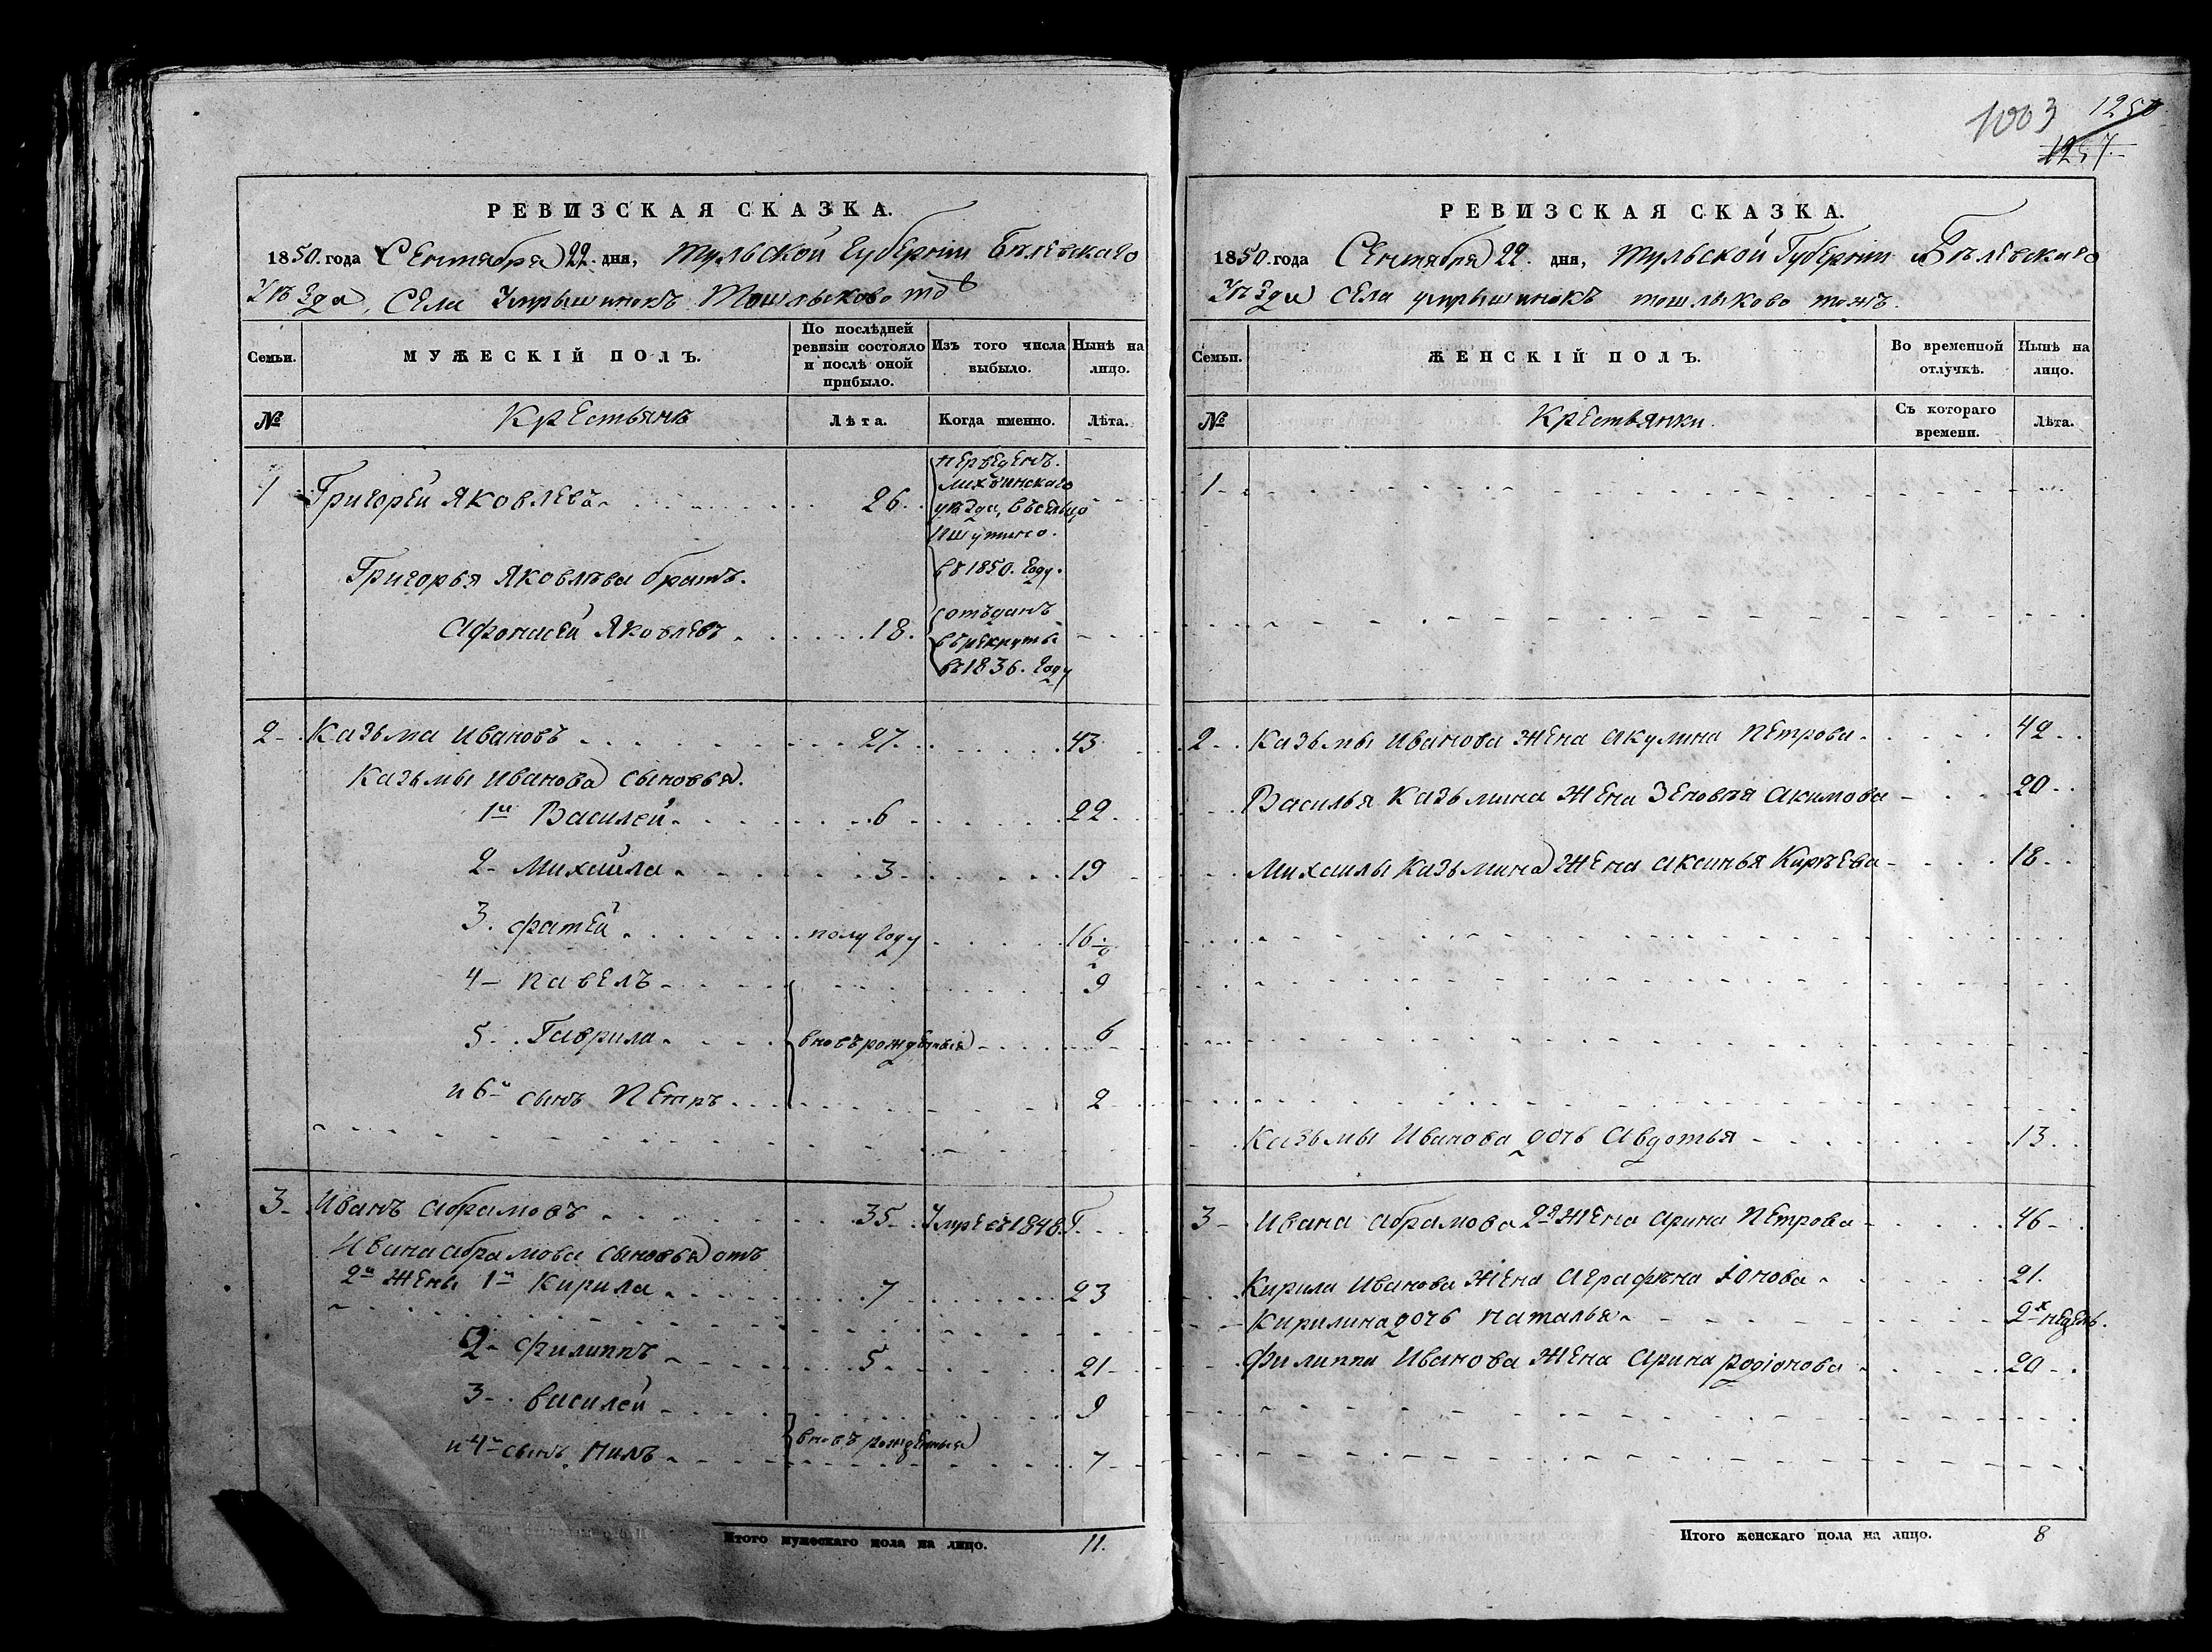 РЕВИЗСКАЯ СКАЗКА.
1850. года Сентября 22. дня, Тульской Губернiи Бѣлевскаго
Уѣзда, Села Тошлыково тоб
МУЖЕСКIЙ ПОЛЪ.
Семьи.
По послѣдней ревизiи состояло и послѣ оной прибыло.
Изъ того числа выбыло.
Нынѣ на лицо.
№
Крестьянъ
Лѣта.
Когда именно.
Лѣта.
1 Григорей Яковлевъ 26.
переведенъ.
Лихвинскаго
уѣзда, въ сельцо
въ 1850. году.
Григорья Яковлева братъ.
Афонасей Яковлевъ 18.
отъданъ
въ рекруты
въ 1836. году
2 Казьма Ивановъ 27. 43
Казьмы Иванова сыновья.
1й Василей 6 22
2 Михайла 3 19
3. Фатей полугоду 16 ½
4 Павелъ 9
5 Гаврила вновърожденныя 6
и 6й сынъ Петръ 2
3 Иванъ Абрамовъ 35 Умре въ 1848. Г
Ивана Абрамова сыновья отъ
2й жены 1й Кирила 7 23
2 Филиппъ 5 21
3 Василей 9
вновъ рожденныя
и 4й сынъ Нилъ 7
Итого мужескаго пола на лицо. 11.
1003 1250
1257.
РЕВИЗСКАЯ СКАЗКА.
1850. года Сентября 22. дня, Тульской Губернiи Бѣлевскаго
Уѣзда села тошлыково тожъ.
Семьи.
ЖЕНСКIЙ ПОЛЪ.
Во временной отлучкѣ.
Нынѣ на лицо.
№
Крестьянки.
Съ котораго времени.
Лѣта.
1
2 Казьмы Иванова жена Акулина Петрова 42
Василья Казьмина жена Зеновѣя Акимова 20
Михаилы Казьмина жена Аксинья Киръева 18
Казьмы Иванова дочь Авдотья 13
3 Ивана Абрамова 2я жена Арина Петрова 46
Кирила Иванова жена Аграфѣна Iонова 21.
Кирилина дочь Наталья 2х недѣль.
Филиппа Иванова жена Арина Родiонова 20
Итого женскаго пола на лицо. 8